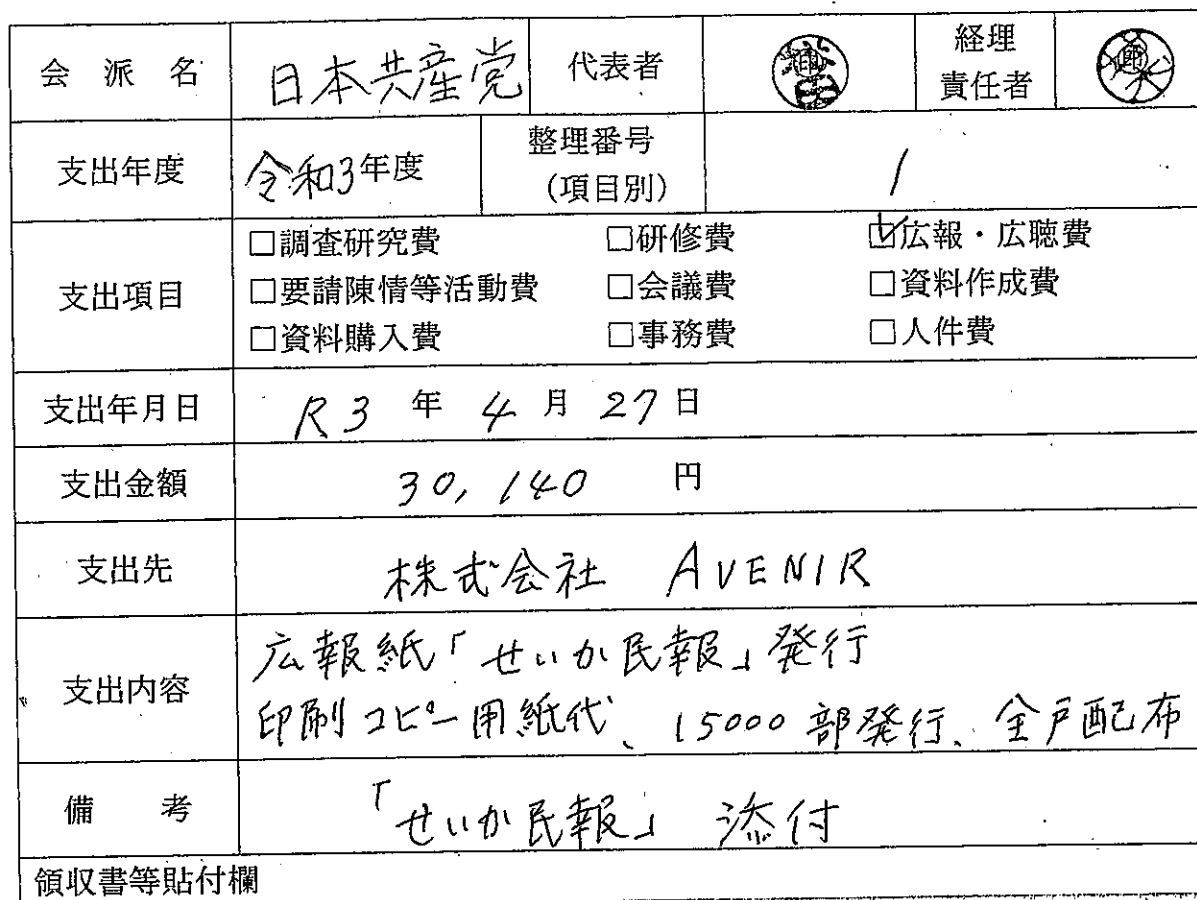 会派名 日本共産党 代表者 印 経理責任者 印
支出年度 令和3年度 整理番号(項目別) 1
支出項目
□調査研究費 □研修費 ☑広報・広聴費
□要請陳情等活動費 □会議費 □資料作成費
□資料購入費 □事務費 □人件費
支出年月日 R3年4月27日
支出金額 30,140 円
支出先 株式会社 AVENIR
支出内容 広報紙「せいか民報」発行
印刷コピー用紙代、15000部発行、全戸配布
備考 「せいか民報」添付
領収書等貼付欄